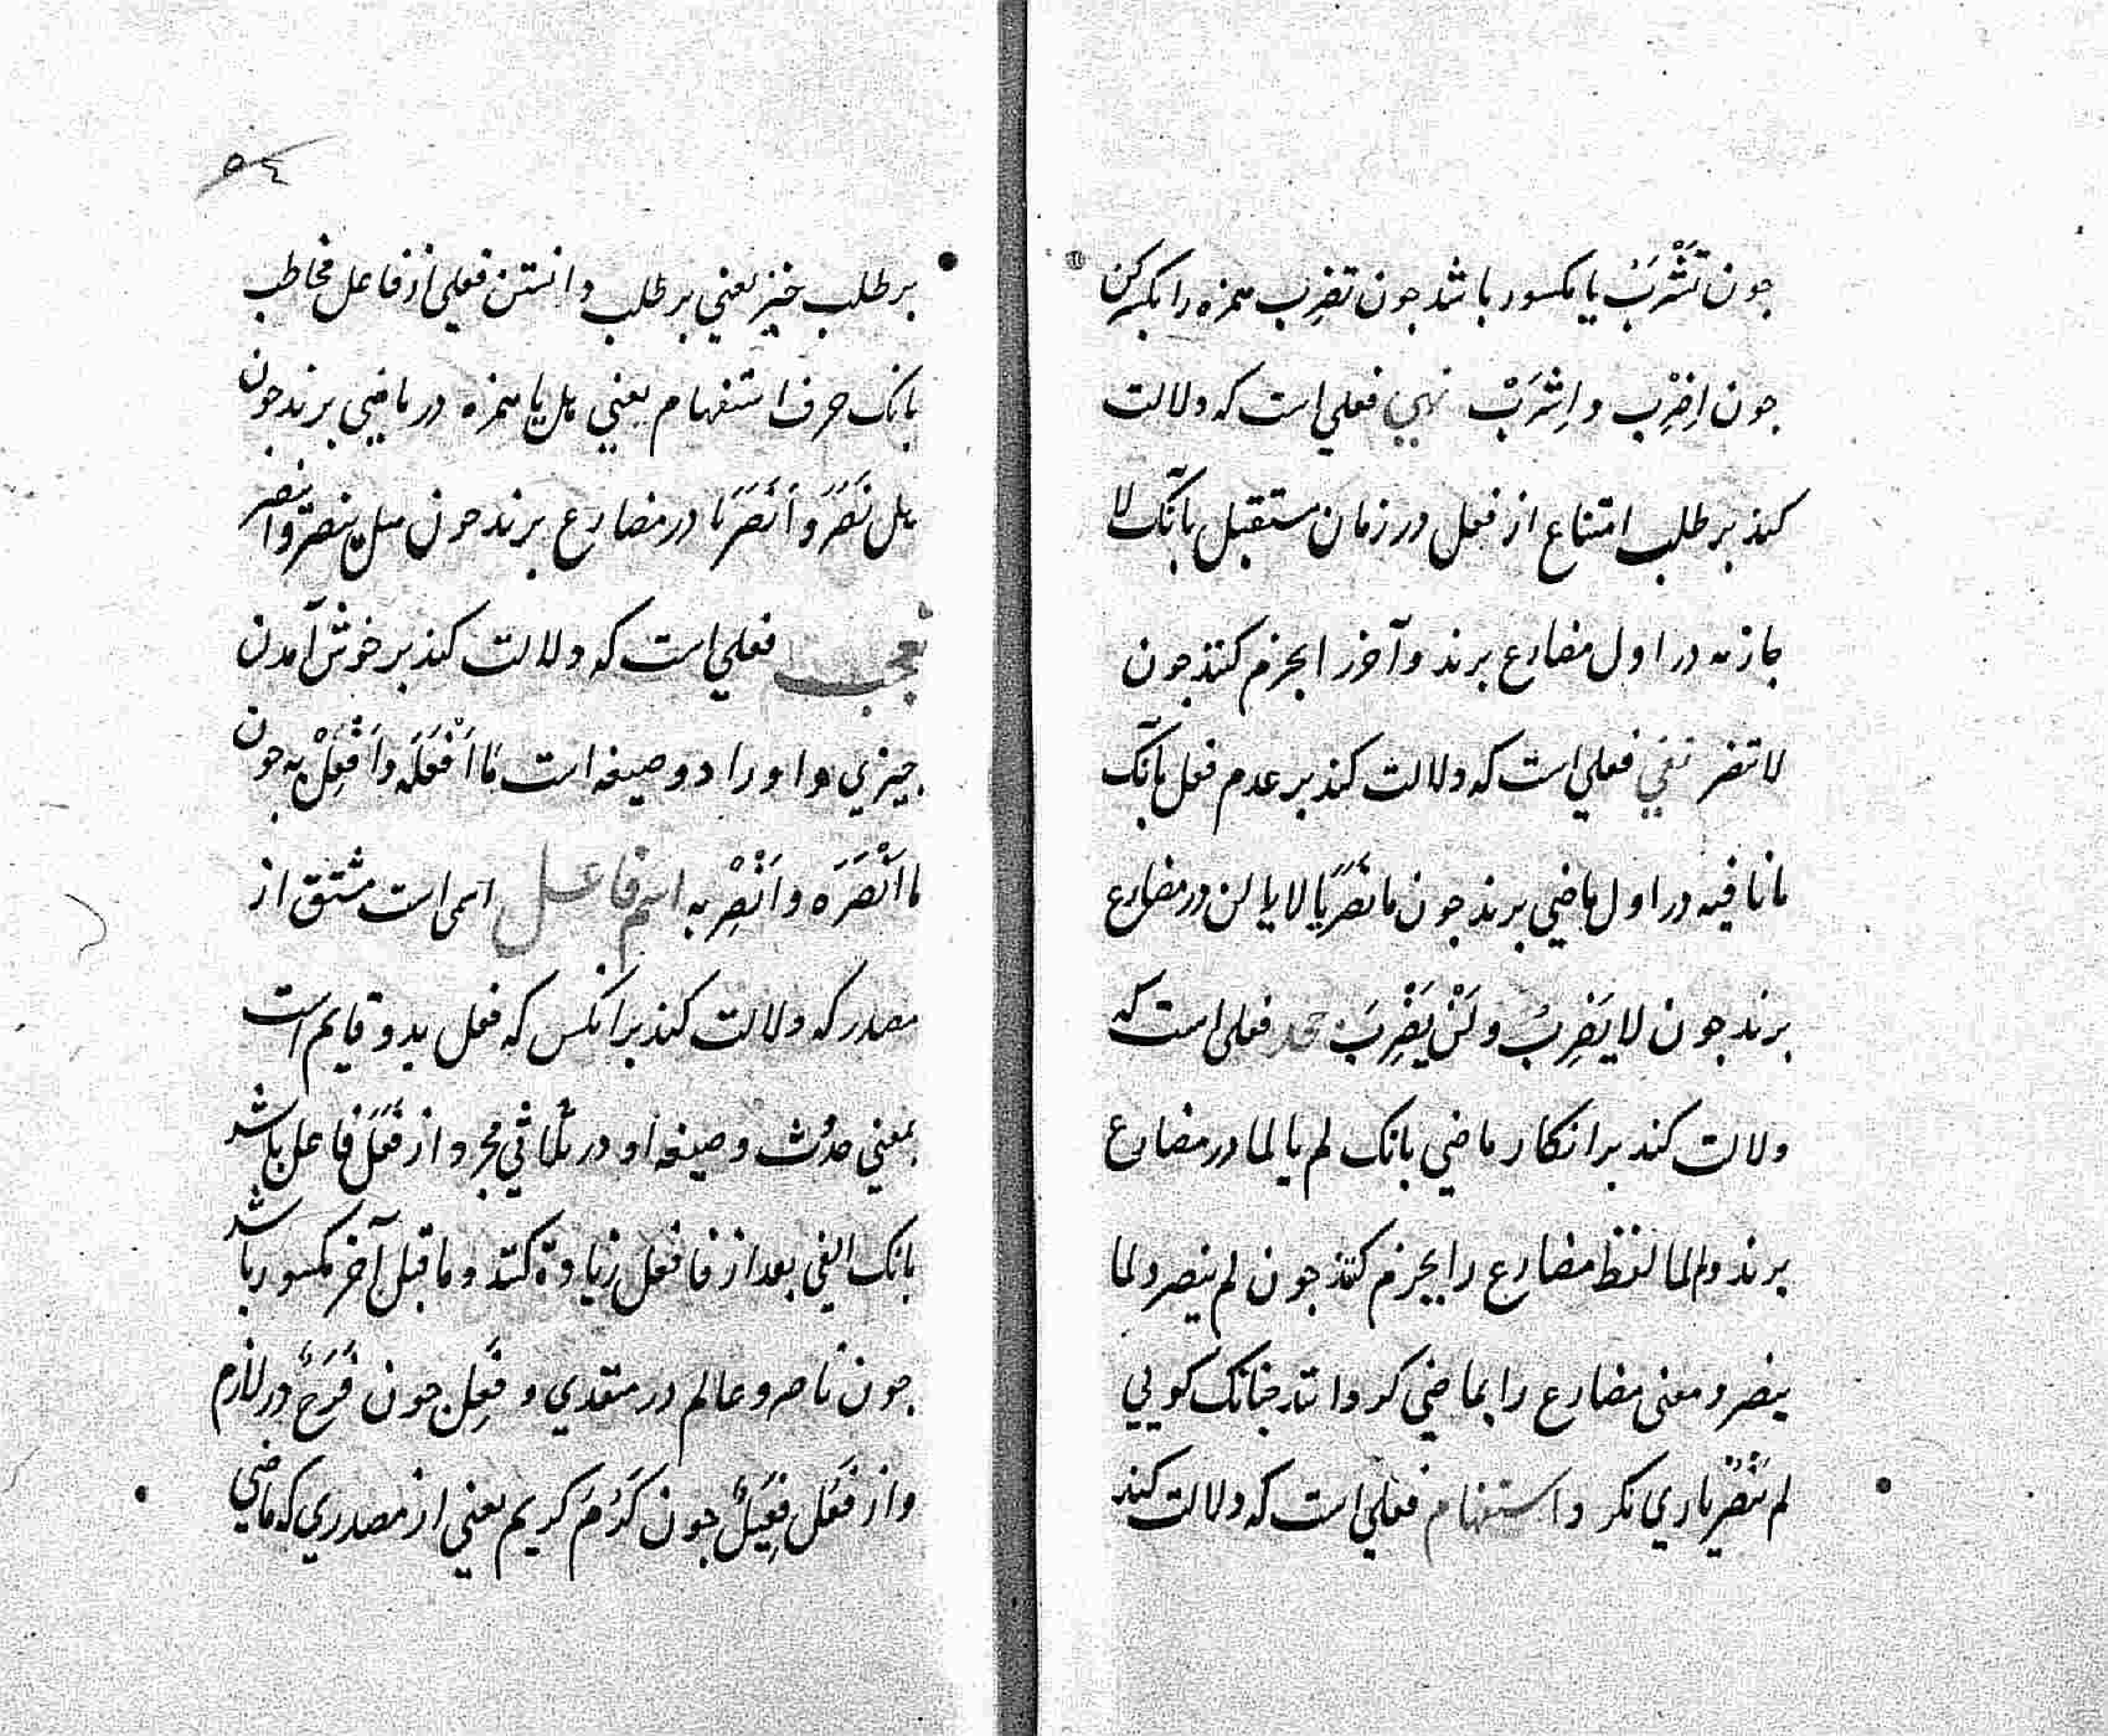 جون تَشْرَبُ يا مكسور باشد جون تضرِب همزه را بكسر كن
جون اِضْرِب و اِشْرَبْ نهي فعلي است كه دلالت
كند بر طلب امتناع از فعل در زمان مستقبل بآنك لا
جازمه در اول مضارع برند و آخر را بجزم كنند جون
لا تنصر نفي فعلي است كه دلالت كند بر عدم فعل بآنك
ما نافيه در اول ماضي برند جون ما نَصَرَ يا لا يا لن در مضارع
برند جون لا يَضْرِبُ و لَنْ يَضْرِبَ جحد فعلي است كه
دلالت كند بر انكار ماضي بانك لم يا لما در مضارع
برند و لم و لما لفظ مضارع را بجزم كنند جون لم ينصر و لما
ينصر و معنى مضارع را بماضي كردانند جنانك كويي
لم يَنْصُرْ ياري نكرد و استفهام فعلي است كه دلالت كند
٥٤
بر طلب خبر يعني بر طلب دانستن فعلي از فاعل مخاطب
بانك حرف استفهام يعني هل يا همزه در ماضي برند جون
هل نَصَرَ و أَنَصَرَ يا در مضارع برند جون هل ينصر و أينصر
تعجب فعلي است كه دلالت كند بر خوش آمدن
جيزي و او را دو صيغه است مَا اَفْعَلَه و اَفْعِلْ به جون
ما اَنْصَرَه و اَنْصِرْ به اسم فاعل اسمى است مشتق از
مصدر كه دلالت كند بر آنكس كه فعل بدو قايم است
بمعني حدُث و صيغه او در ثلاثي مجرد از فَعَلَ فاعل باشد
بانك الفي بعد از فا فعل زياده كنند و ما قبل آخر مكسور باشد
جون ناصر و عالم در متعدي و فَعِل جون فَرِحٌ در لازم
و از فَعُلَ فَعِيلٌ جون كَرُمَ كريم يعني از مصدري كه ماضي